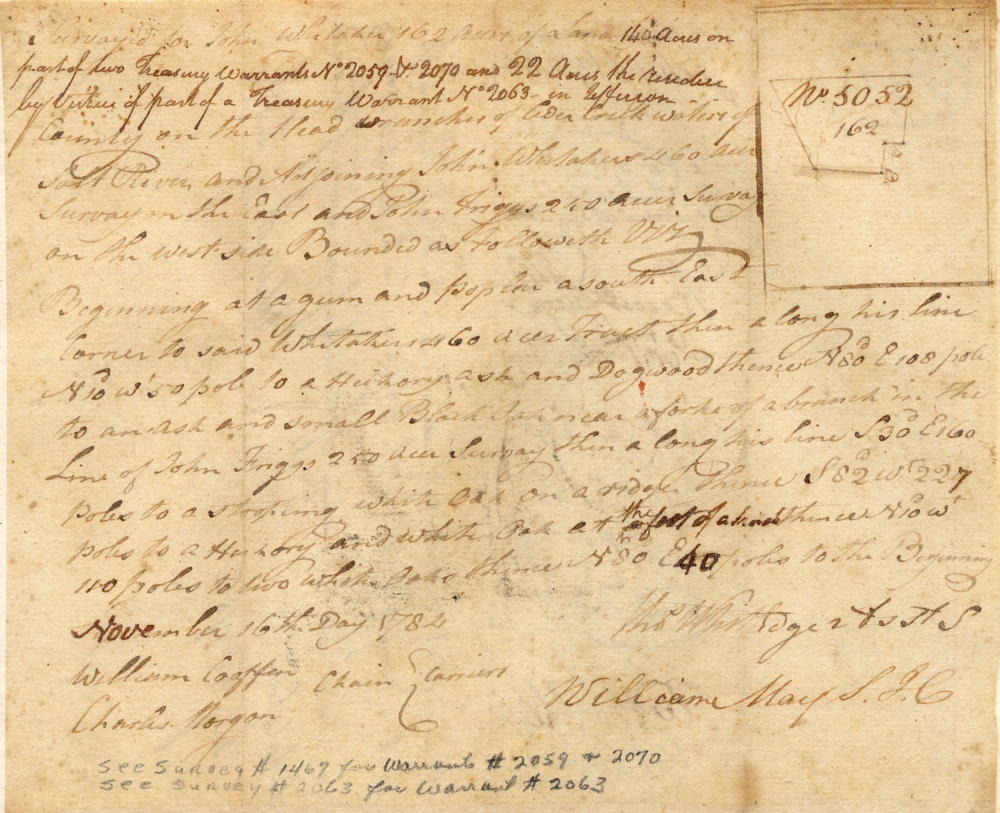 Survayd for John Whitaker 162 Acres of Land 140 Acres on
part of two Treasury Warrants No 2059 & 2070 and 22 Acres the
by Virtue of part of a Treasury Warrant No 2063 in Jefferson
County on the Head branches of Ceder Creek waters of
Salt River and Adjoining John Whitakers 460 acer
Survay on the East and John Friggs 250 acer Survay
on the west side Bounded as followeth Viz
Beginning at a gum and poplar a south East
Corner to said Whitakers 460 acer Tract then along his line
N10 Wt 50 pole to a Hickory ash and Dogwood thence N80d E 108 pole
to an ash and small Black Oak near a forke of a branch in the
Line of John Friggs 250 acer Survay then along his line S30d E 160
poles to a stooping white Oak on a ridge thence S82d Wt 227
poles to a Hickory and white Oak at the foot of a thence N10 Wt
110 poles to two white Oaks thence N80 E 40 poles to the Beginning
November 16th Day 1784
Thos Whitledge Asst S
William Coffer
Charles Morgon
Chain Carriers
William May S. J. C
No 5052
162
See Survey # 1467 for Warrants # 2059 + 2070
See Survey # 2063 for Warrant # 2063